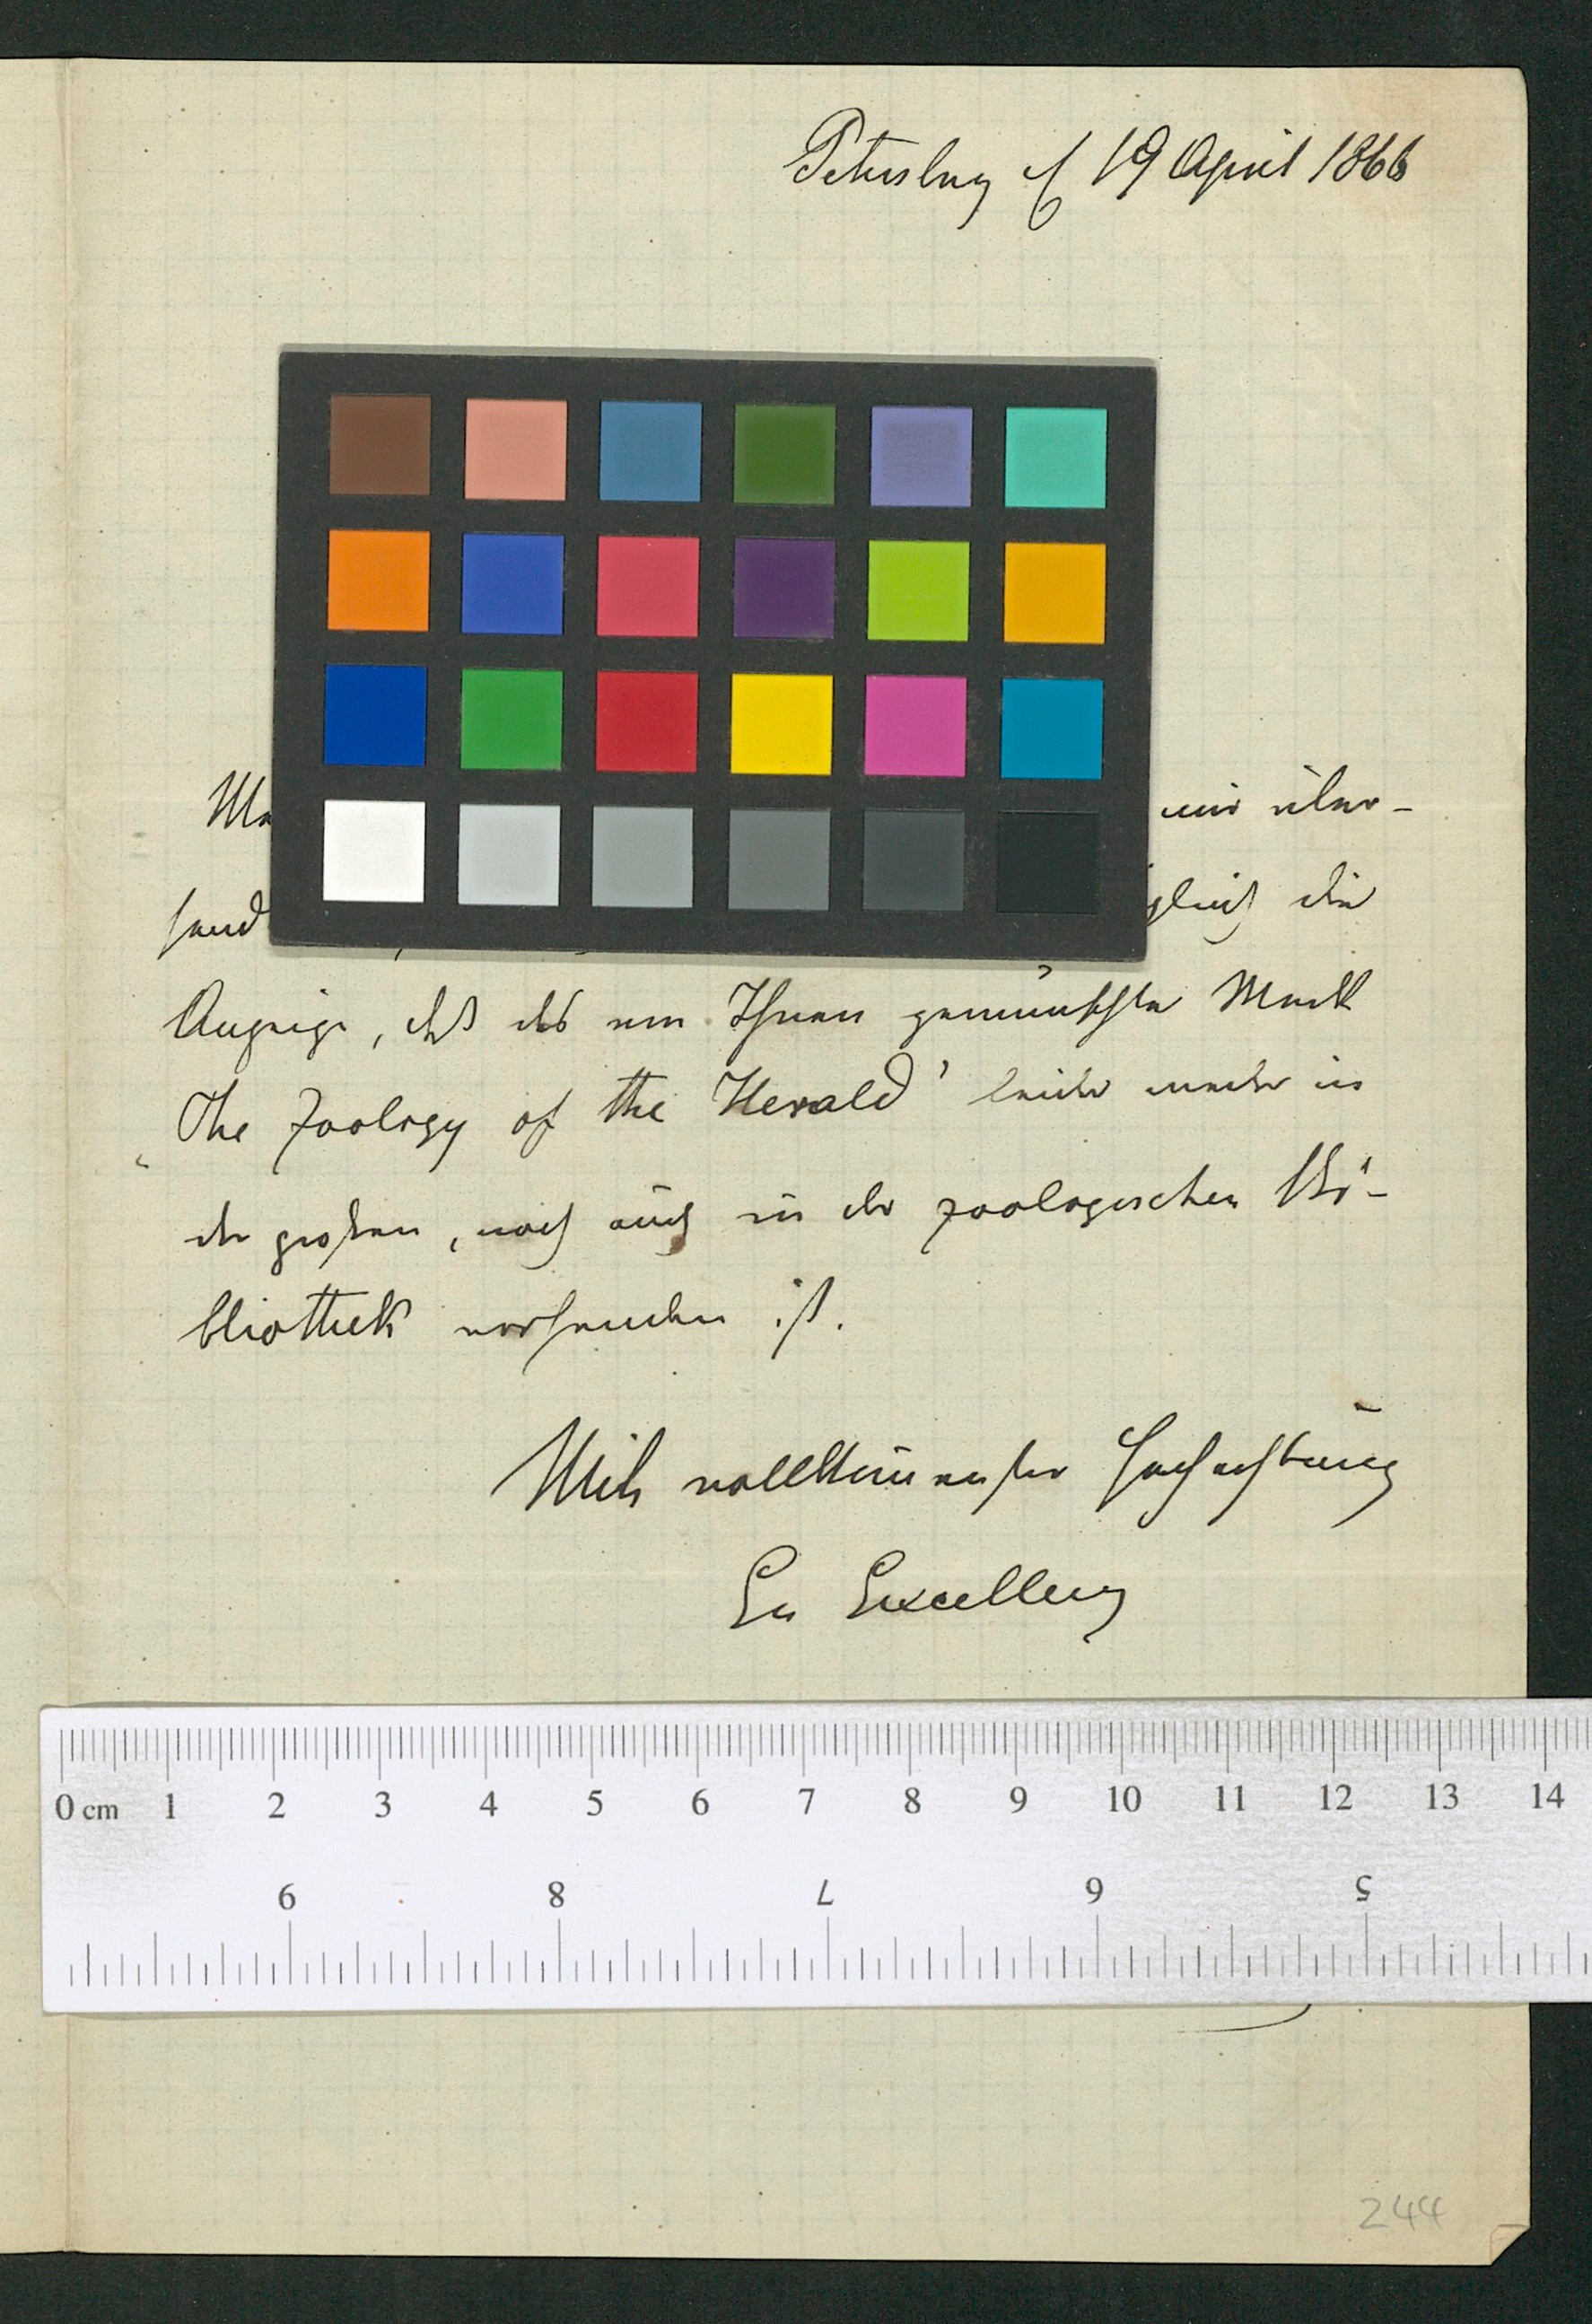 Petersburg d 19 April 1866
mir über-
sand
gleich die
Anzeige, daß das von Ihnen gewünschte Werk
"The Zoology of the Herald" leider weder in
der großen, noch auch in der zoologischen Bi-
bliothek vorhanden ist.
Mit vollkommenster Hochachtung
Eu Excellenz
0 cm 1 2 3 4 5 6 7 8 9 10 11 12 13 14
9 8 7 6 5
244